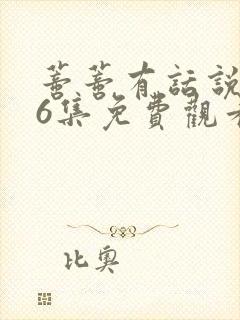 蔷蔷有話說
6集免費觀看
比奧